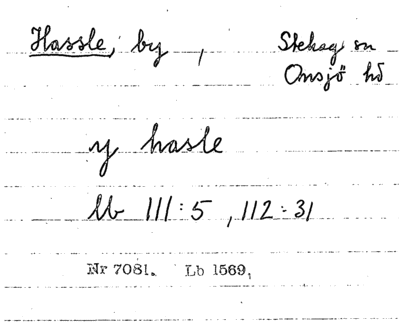 Hassle, by, Stehag sn
Onsjö hd
y hasle
lb 111:5, 112:31
Nr 7081. Lb 1569,